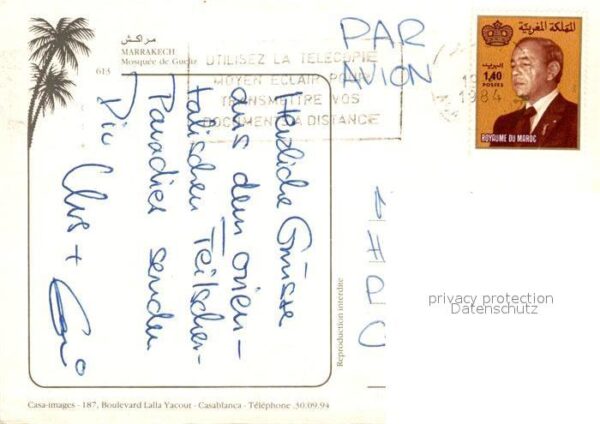 مراكش
MARRAKECH
Mosquée de Gueliz
613
UTILISEZ LA TELECOPIE
MOYEN ECLAIR POUR
TRANSMETTRE VOS
DOCUMENTS A DISTANCE
PAR
AVION
1984
المملكة المغربية
البريد
1,40
POSTES
ROYAUME DU MAROC
Herzliche Grüsse
aus dem orien-
talischen
Paradies senden
Reproduction interdite
privacy protection
Datenschutz
Casa-images - 187, Boulevard Lalla Yacout - Casablanca - Téléphone .30.09.94